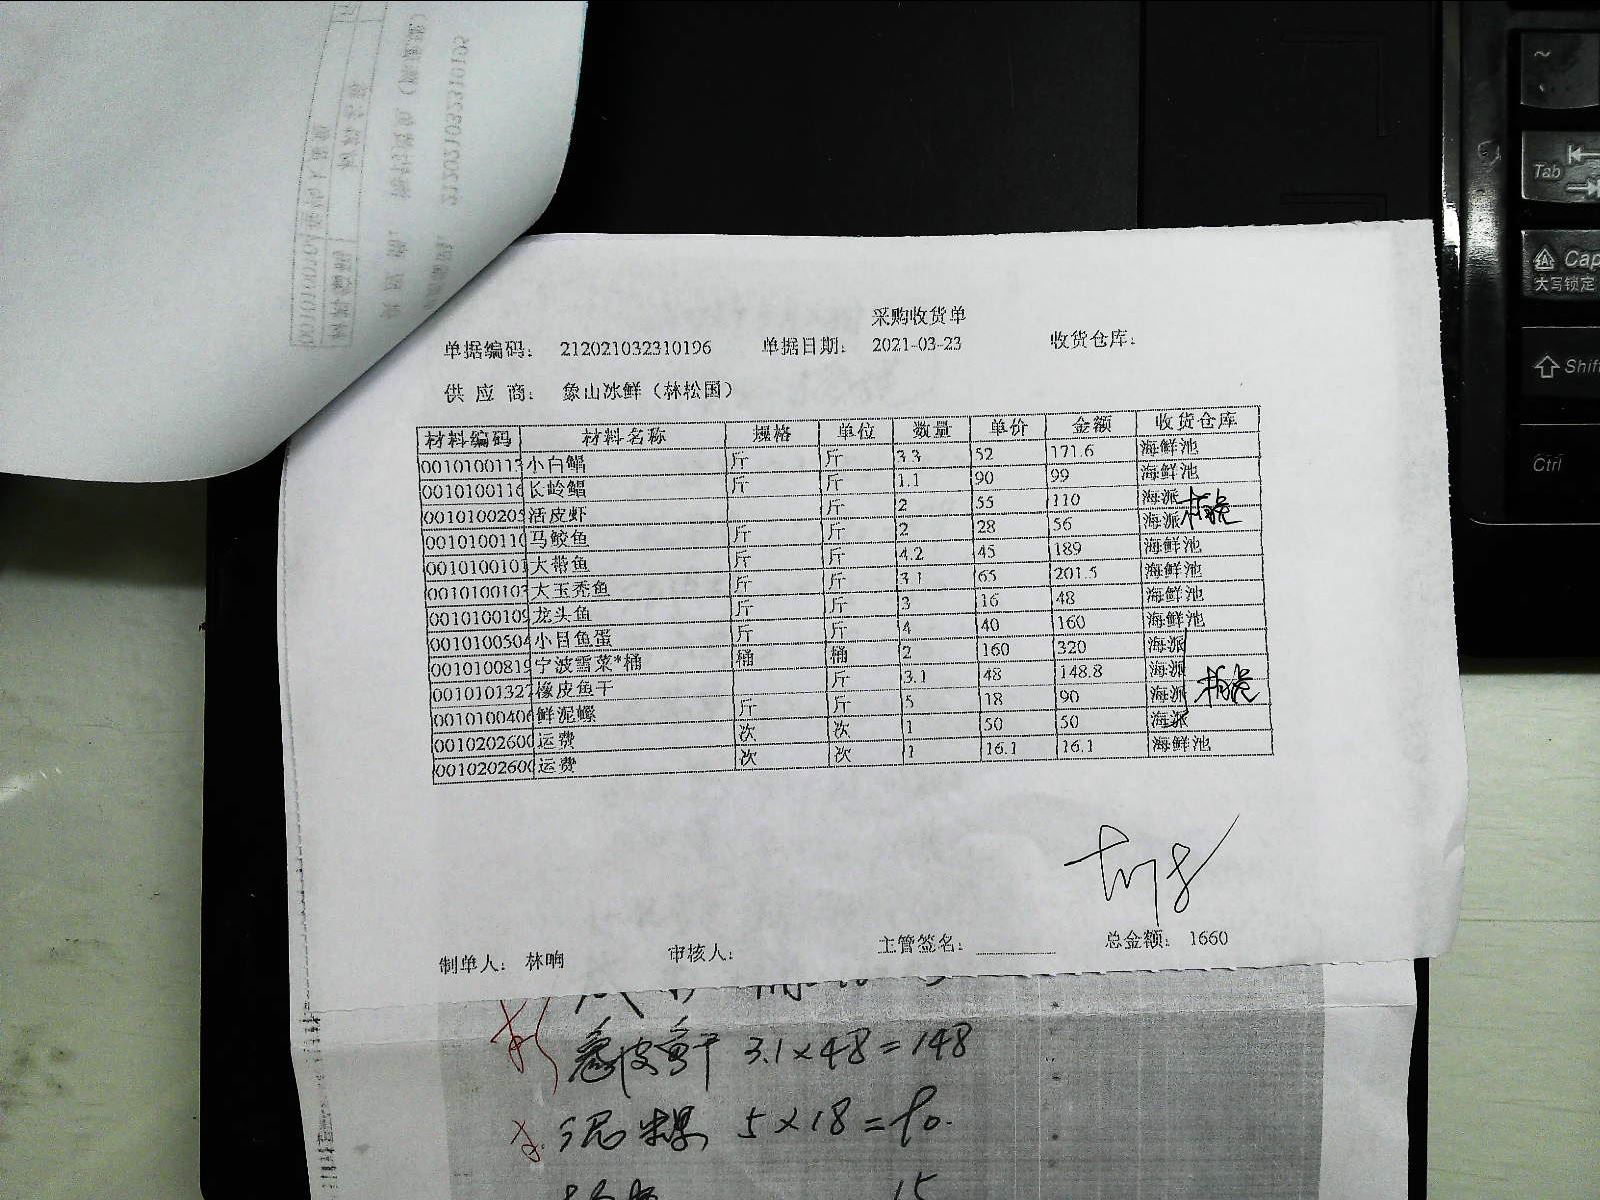 采购收货单
单据编码： 212021032310196 单据日期： 2021-03-23 收货仓库：
供 应 商： 象山冰鲜（林松国）
材料编码 材料名称 规格 单位 数量 单价 金额 收货仓库
0010100113 小白鲳 斤 斤 3.3 52 171.6 海鲜池
0010100116 长岭鲳 斤 斤 1.1 90 99 海鲜池
0010100205 活皮虾 斤 2 55 110 海派
0010100110 马鲛鱼 斤 斤 2 28 56 海派
0010100101 大带鱼 斤 斤 4.2 45 189 海鲜池
0010100103 大玉秃鱼 斤 斤 3.1 65 201.5 海鲜池
0010100109 龙头鱼 斤 斤 3 16 48 海鲜池
0010100504 小目鱼蛋 斤 斤 4 40 160 海鲜池
0010100819 宁波雪菜*桶 桶 桶 2 160 320 海派
0010101327 橡皮鱼干 斤 3.1 48 148.8 海派
0010100406 鲜泥螺 斤 斤 5 18 90 海派
0010202600 运费 次 次 1 50 50 海派
0010202600 运费 次 次 1 16.1 16.1 海鲜池
制单人： 林响 审核人： 主管签名： 总金额： 1660
皮鱼干 3.1×48=148
泥螺 5×18=90.
15
~
Tab
Cap
大写锁定
Shif
Ctrl